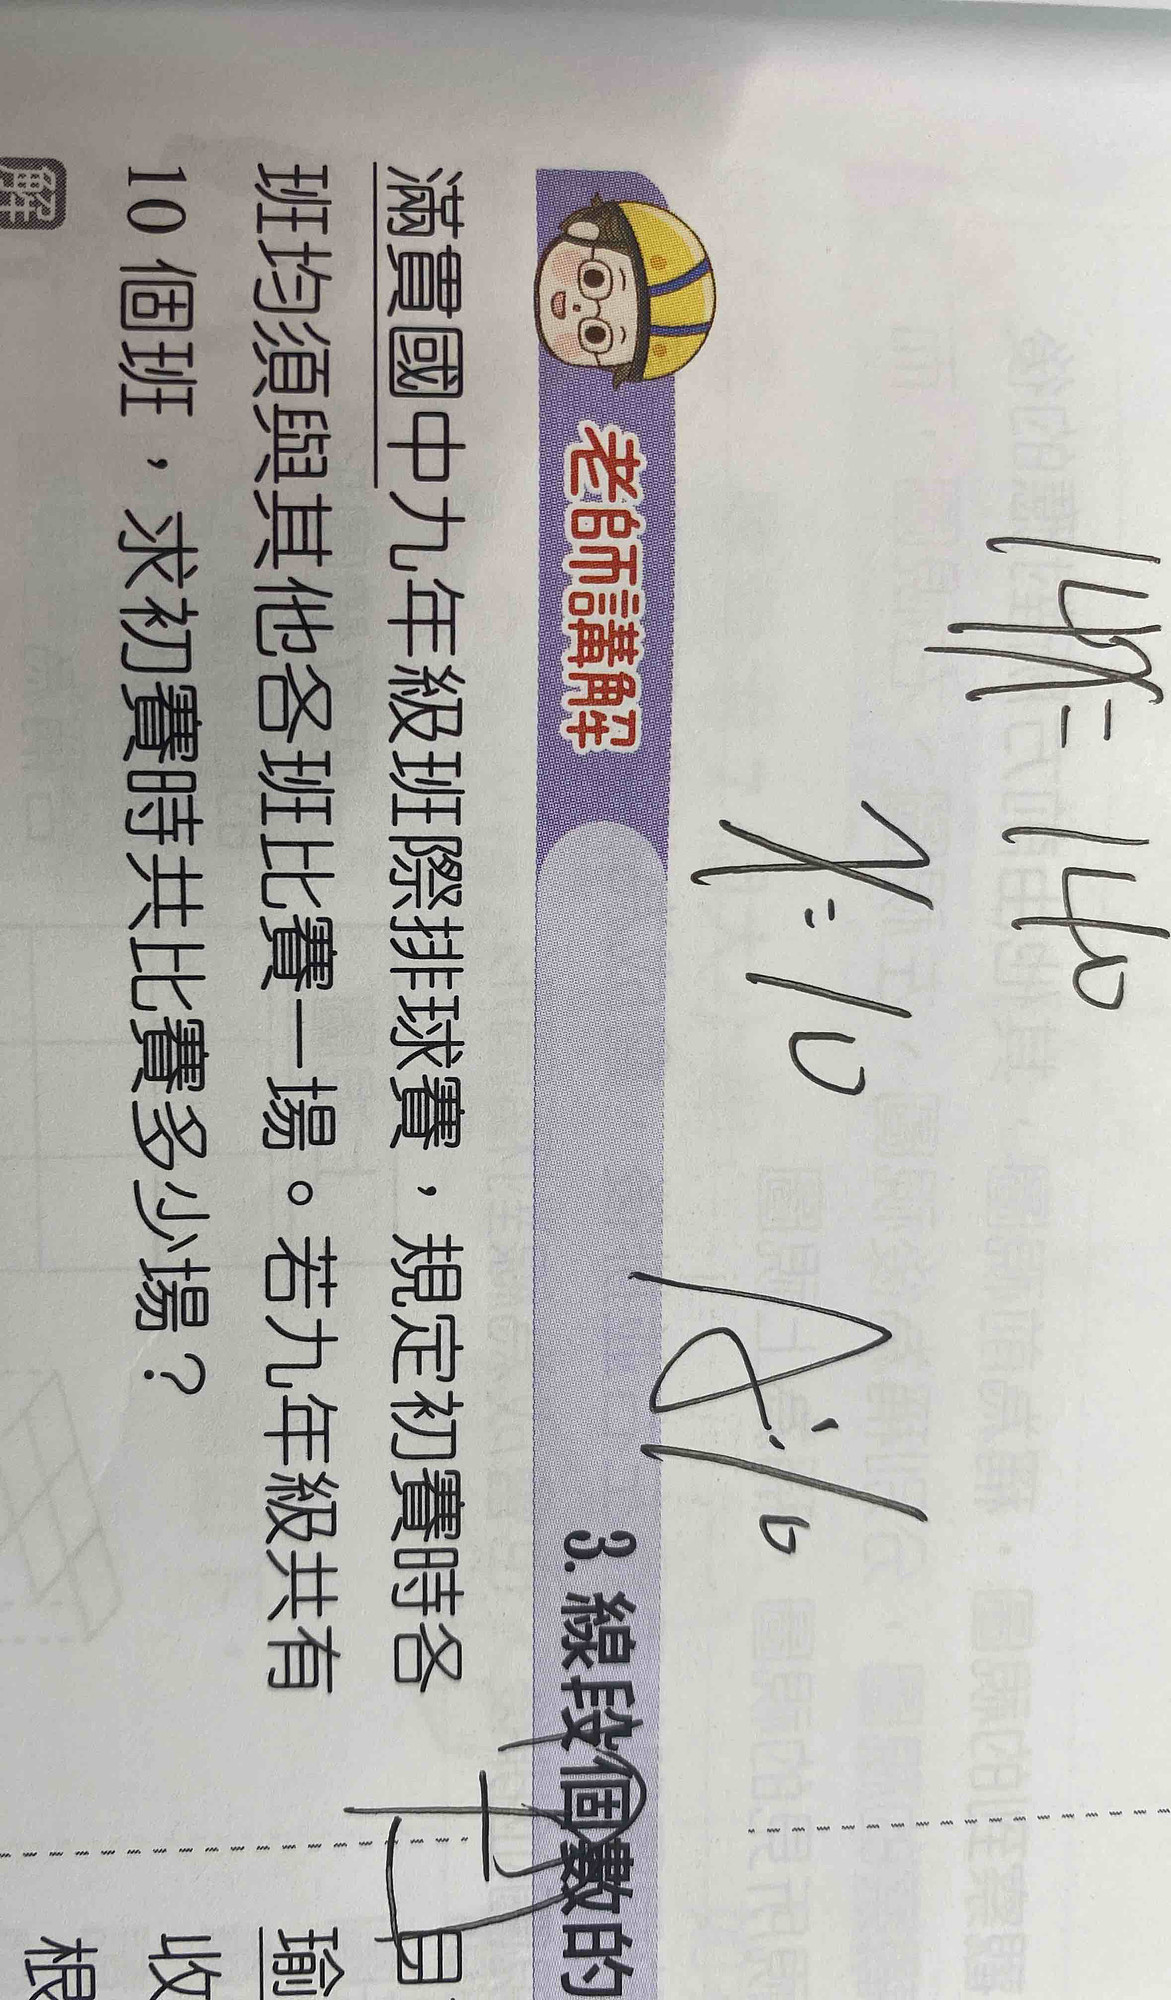 14x=140
x=10
A:10
老師講解 3.線段個數的
滿貫國中九年級班際排球賽，規定初賽時各
班均須與其他各班比賽一場。若九年級共有
10個班，求初賽時共比賽多少場？
解
瑜
收
根